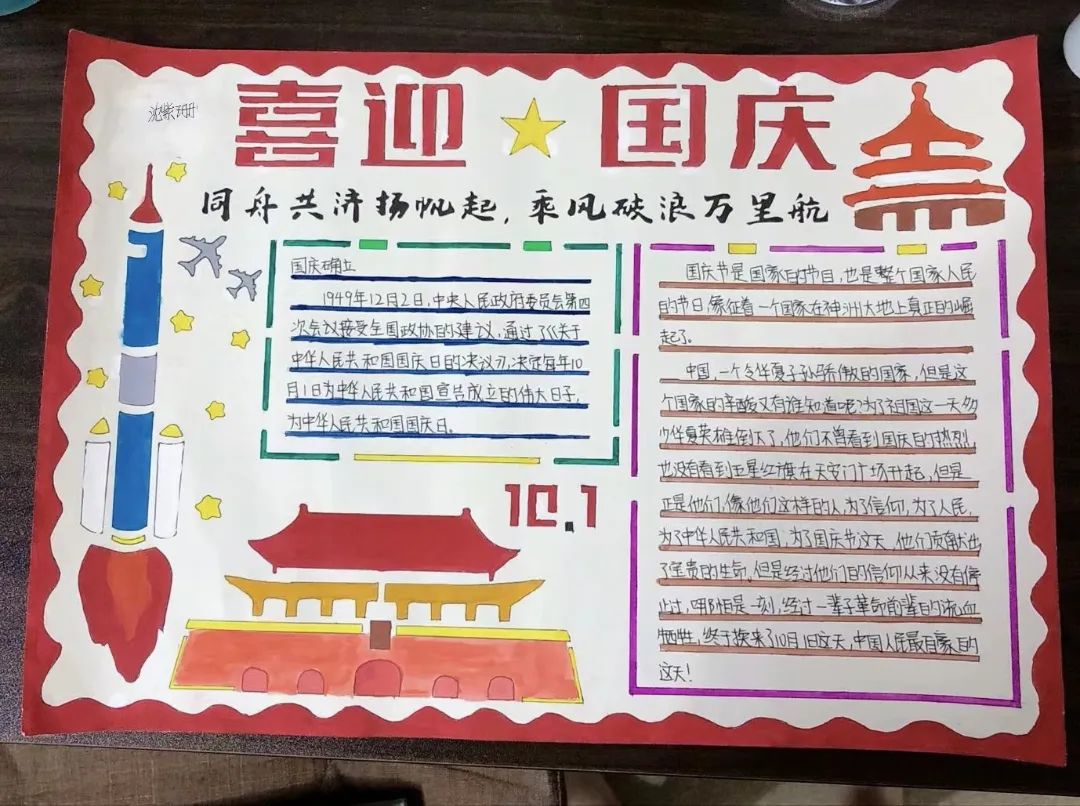 沈紫珊
喜迎国庆
同舟共济扬帆起，乘风破浪万里航
国庆确立
1949年12月2日，中央人民政府委员会第四
次会议接受全国政协的建议，通过了《关于
中华人民共和国国庆日的决议》，决定每年10
月1日为中华人民共和国宣告成立的伟大日子，
为中华人民共和国国庆日。
10.1
国庆节是国家的节日，也是整个国家人民
的节日，象征着一个国家在神洲大地上真正的崛
起了。
中国，一个令华夏子孙骄傲的国家，但是这
个国家的辛酸又有谁知道呢？为了祖国这一天多
少华夏英雄倒下了，他们不曾看到国庆日的热烈
也没有看到五星红旗在天安门广场升起，但是
正是他们，像他们这样的人为了信仰，为了人民，
为了中华人民共和国，为了国庆节这天，他们贡献出
了宝贵的生命，但是经过他们的信仰从来没有停
止过，哪怕是一刻，经过一辈子革命前辈的流血
牺牲，终于换来了10月1日这天，中国人民最自豪的
这天！